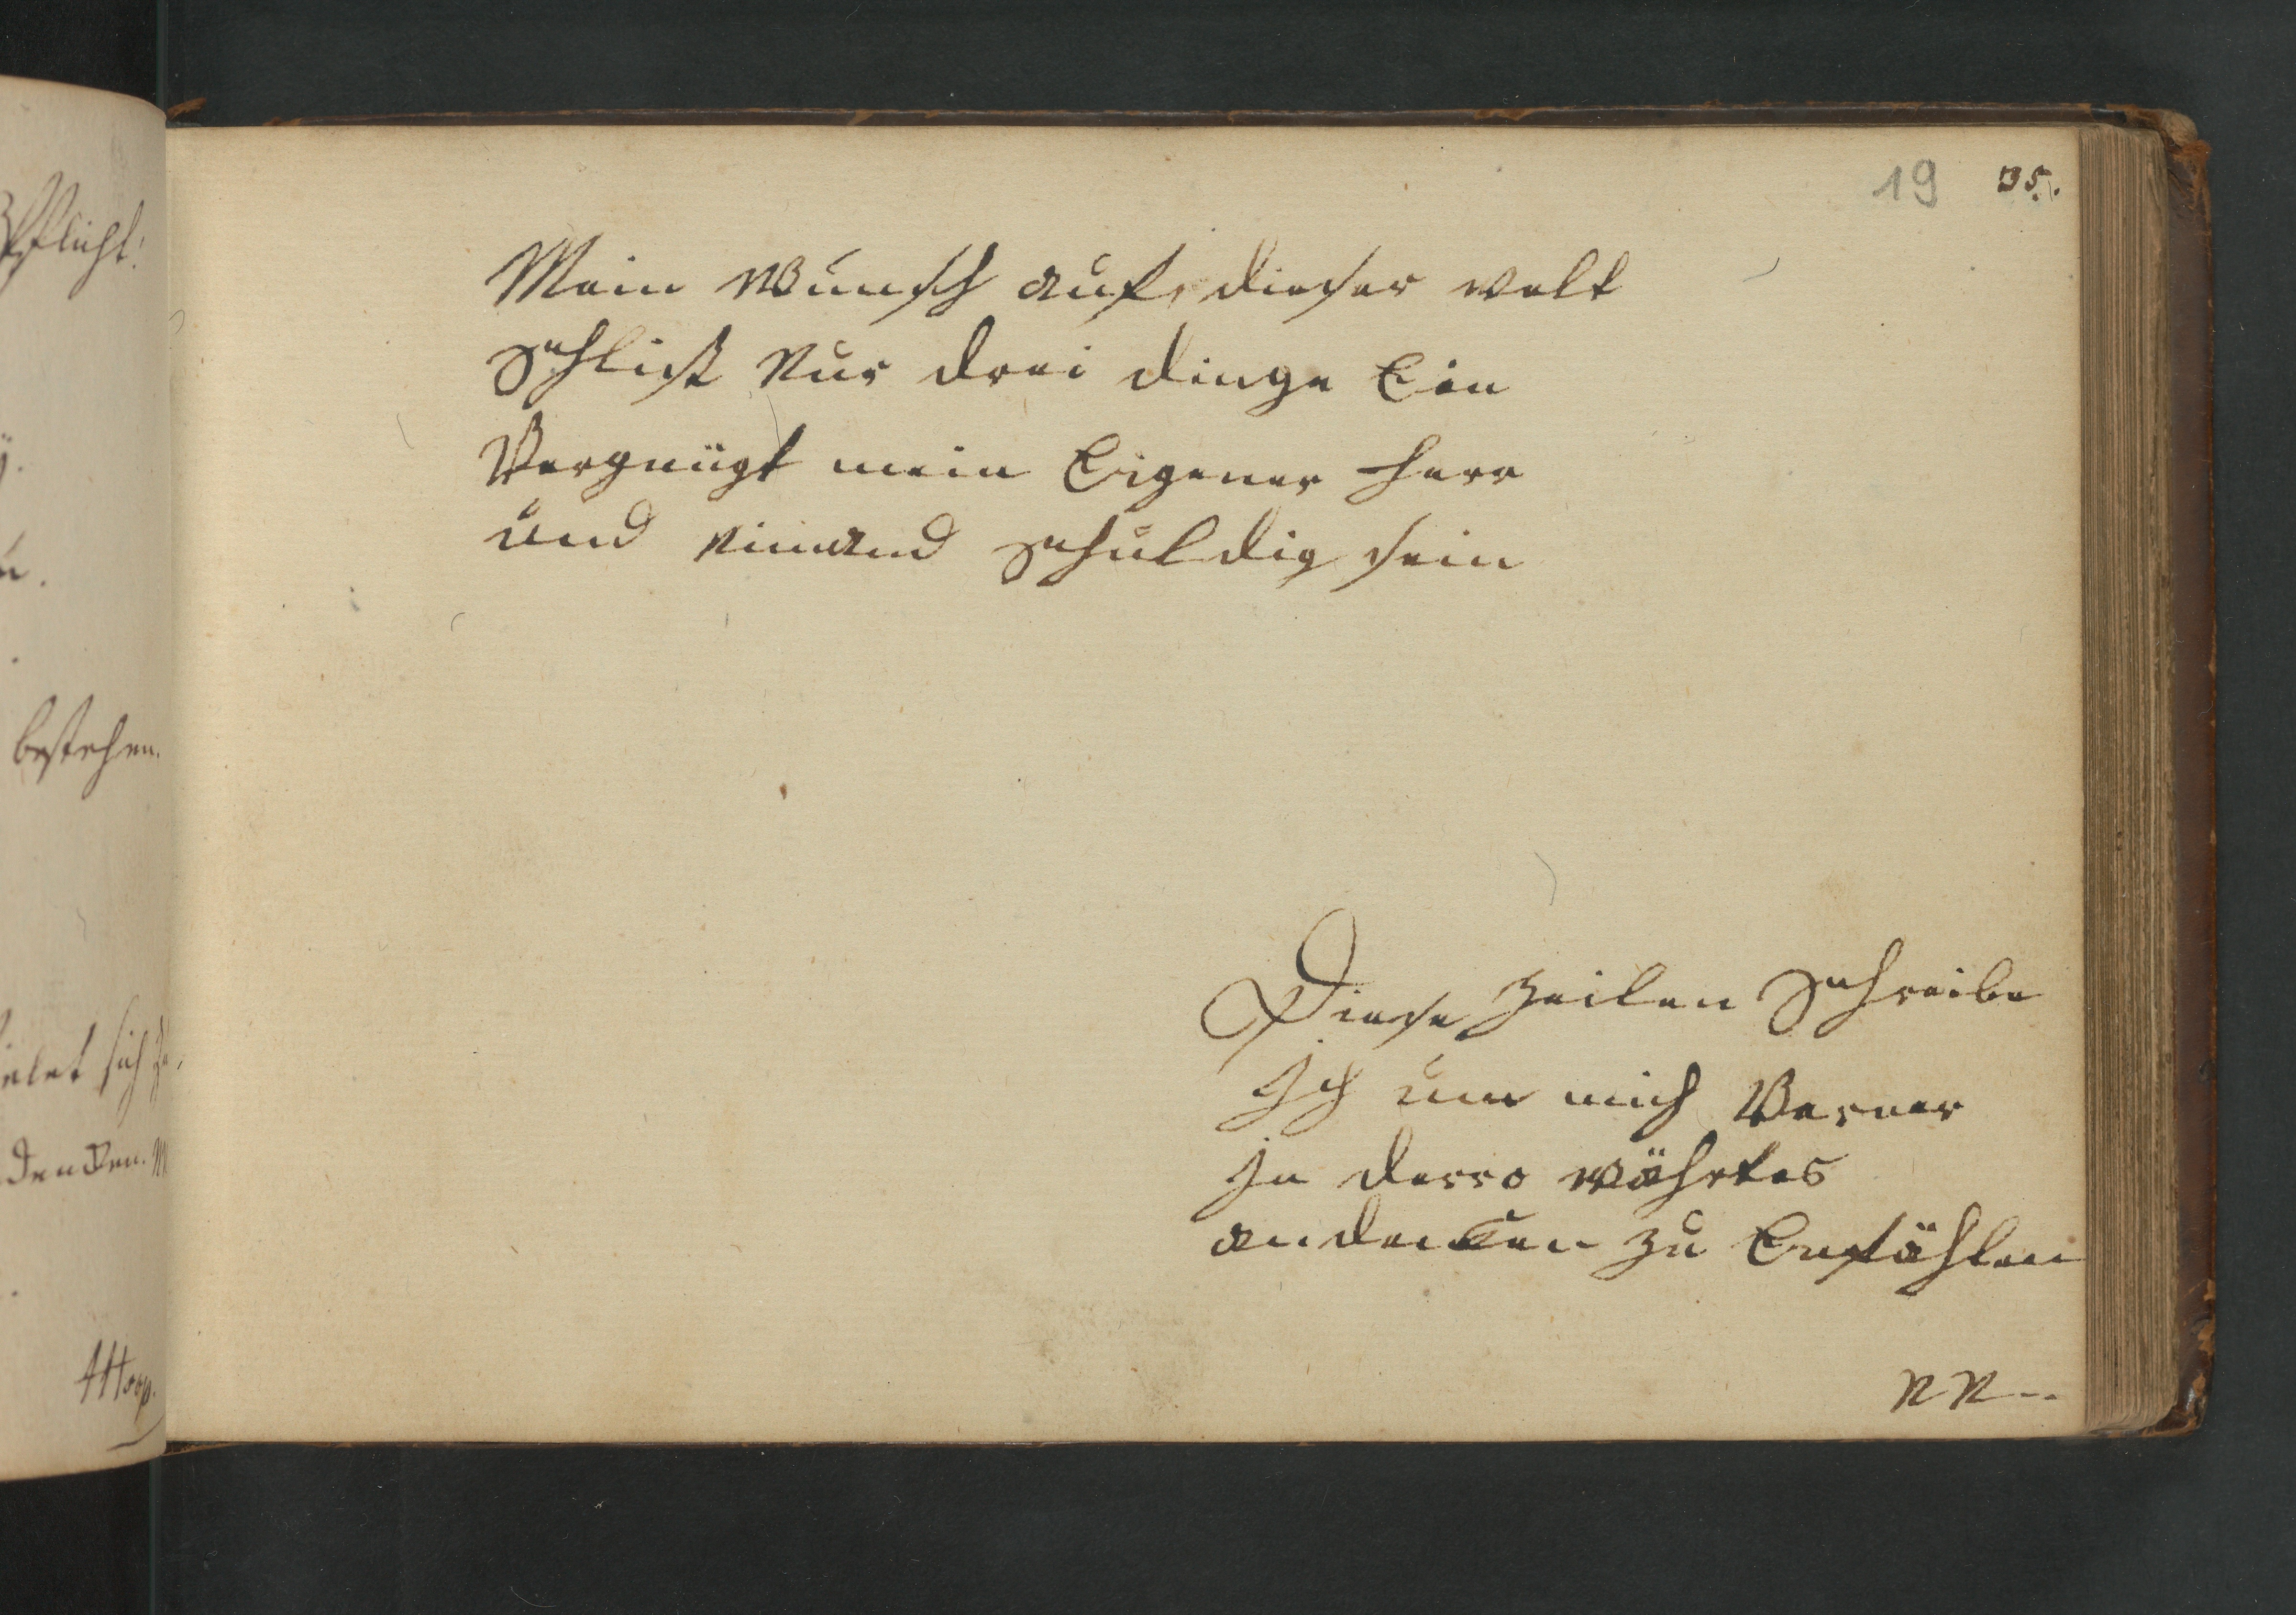 19 35.
Mein Wunsch auf dieser welt
Schlist Nur drei dinge Ein
Vergnügt mein Eigener Herr
und nimand Schuldig sein
Diese Zeilen Schreibe
Ich um mich Verner
In dero währtes
andencken zu Empfählen
NN--
Pflicht!
bestehen.
sich